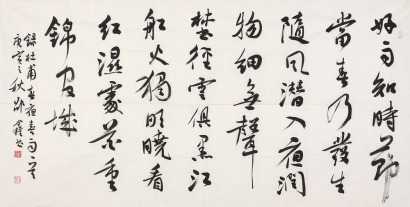 好雨知時節
當春乃發生
隨風潛入夜潤
物細無聲
埜徑雲俱黑江
船火獨明曉看
紅濕處花重
錦官城
錄杜甫春夜喜雨
庚寅之秋